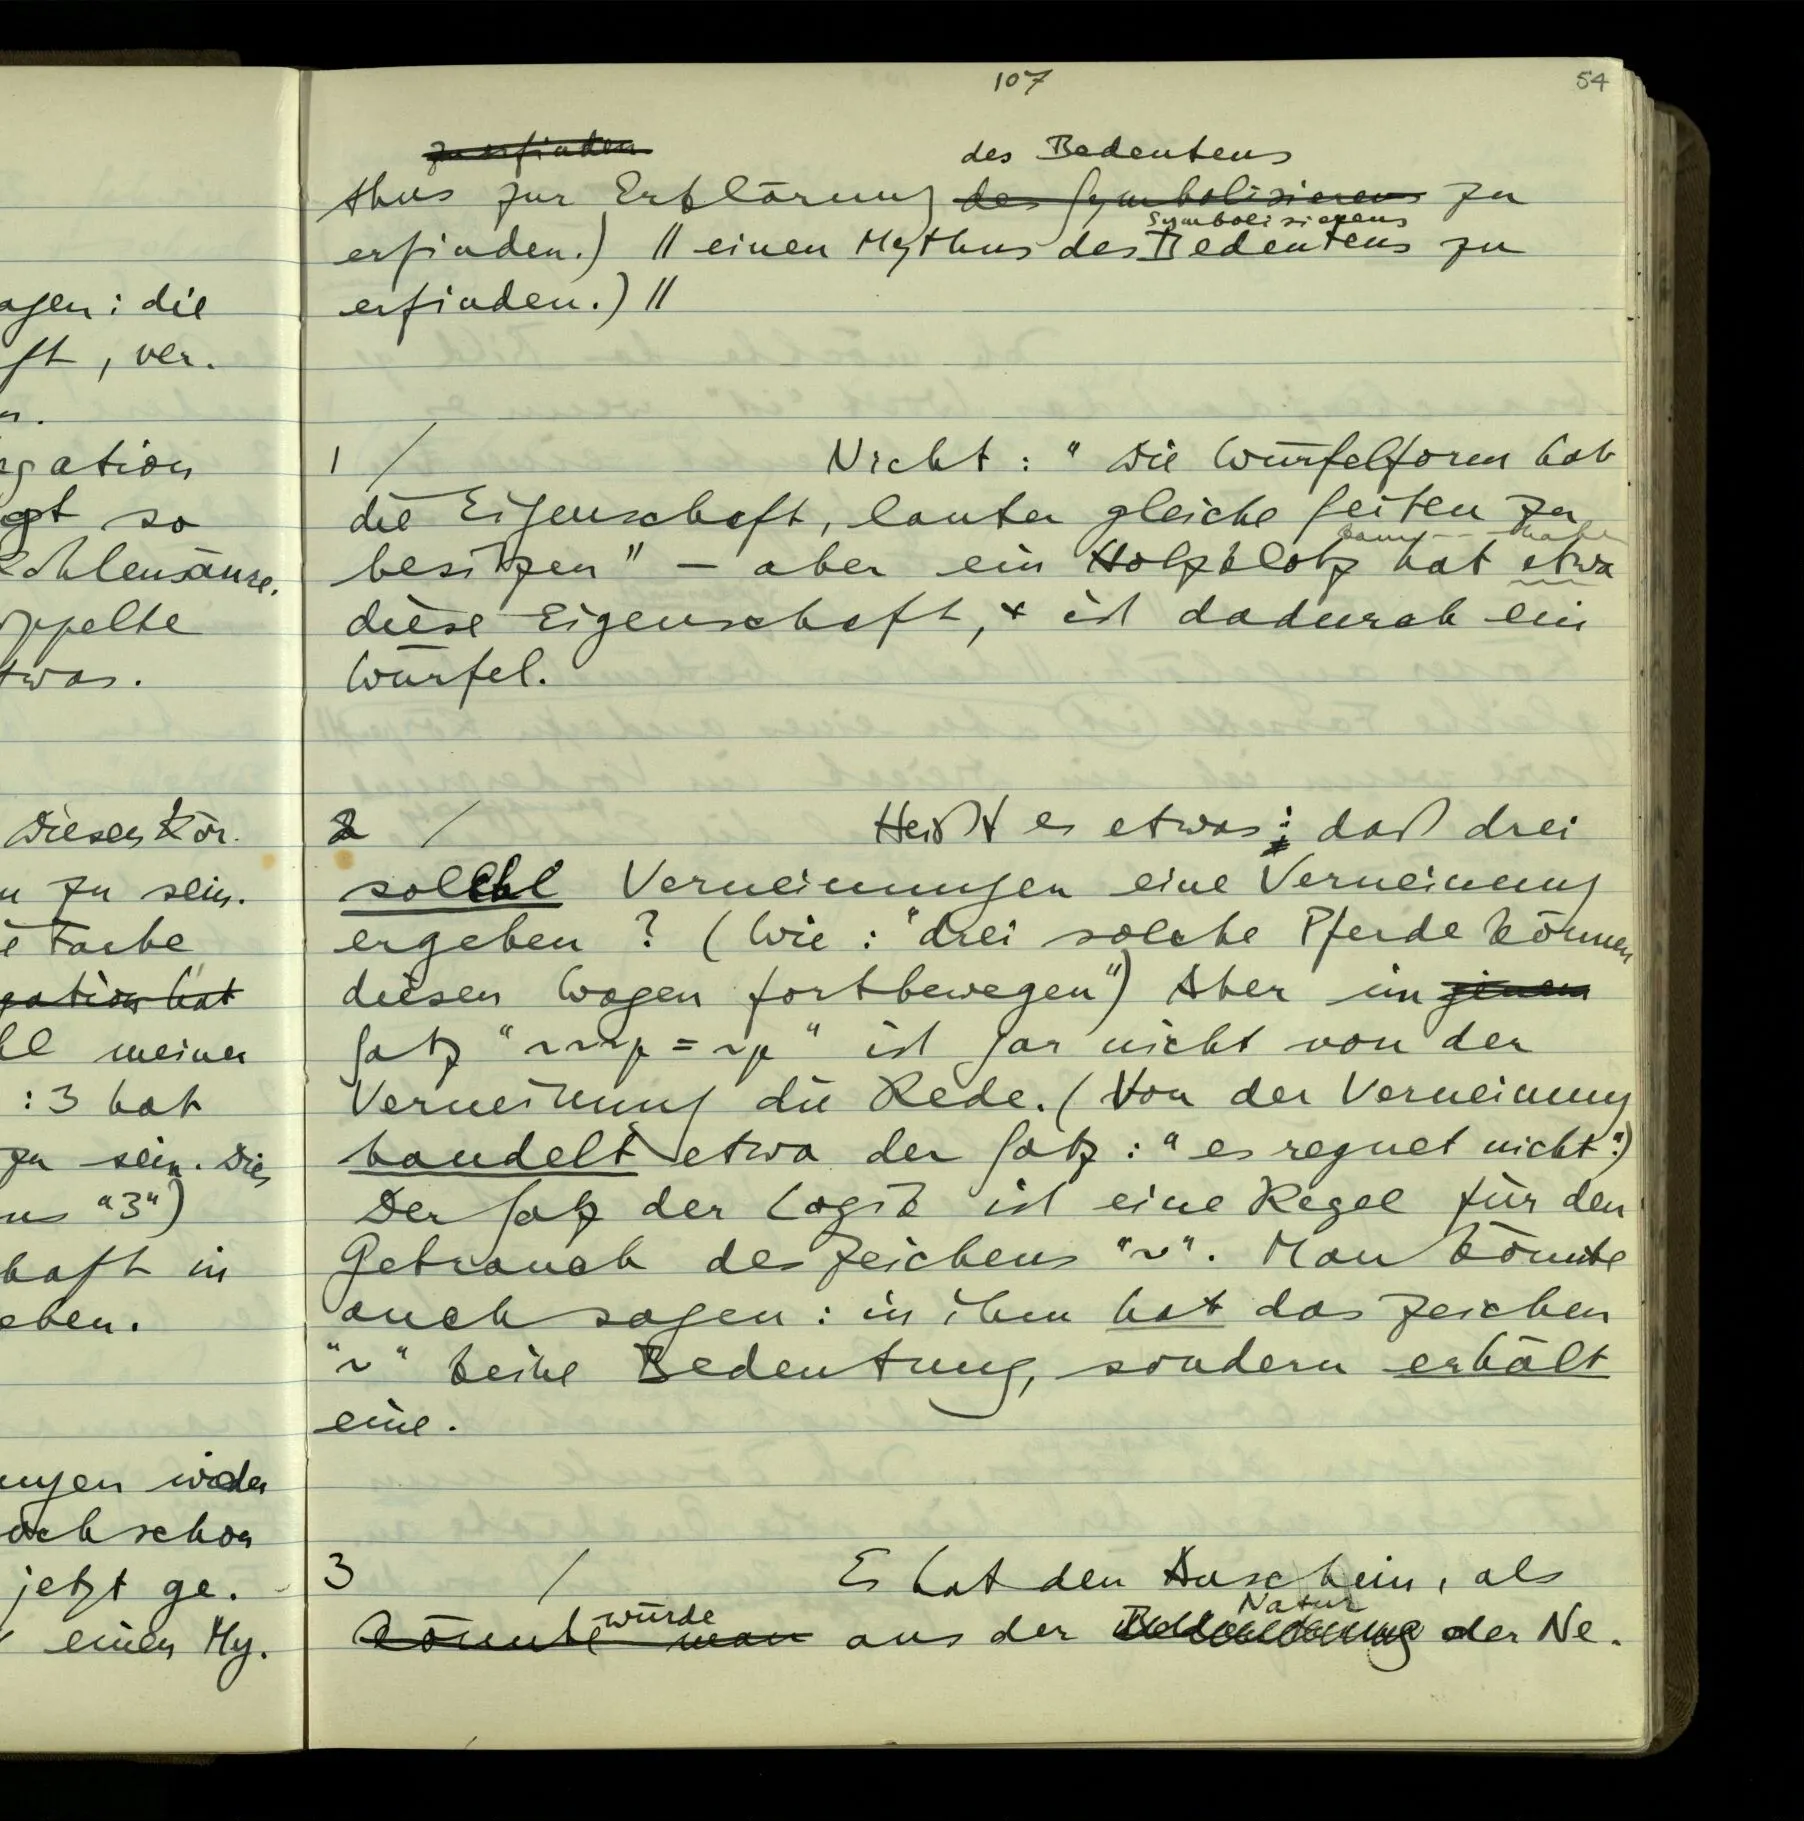 107
54
zu erfinden
des Bedeutens
thus zur Erklärung des Symbolisierens zu
Symbolisierens
erfinden.) || einen Mythus des Bedeutens zu
erfinden.) ||
1 / Nicht : " Die Würfelform hat
die Eigenschaft, lauter gleiche Seiten zu
kann --- haben
besitzen" – aber ein Holzklotz hat etwa
diese Eigenschaft, + ist dadurch ein
Würfel.
2 / Heißt es etwas: daß drei
solche Verneinungen eine Verneinung
ergeben ? (Wie : "drei solche Pferde können
diesen Wagen fortbewegen") Aber im jenem
Satz "~~~p = ~p" ist gar nicht von der
Verneinung die Rede. (Von der Verneinung
handelt etwa der Satz : "es regnet nicht".)
Der Satz der Logik ist eine Regel für den
Gebrauch des Zeichens "~". Man könnte
auch sagen : in ihm hat das Zeichen
"~" keine Bedeutung, sondern erhält
eine.
3 / Es hat den Anschein, als
würde Natur
könnte man aus der Bedeutung der Ne-
agen : die
ft, ver-
n.
gation
gt so
Kohlensäure.
oppelte
twas.
Dieser Kör-
n zu sein.
e Farbe
gation hat
hl meiner
: 3 hat
zu sein. Die
ns "3")
haft in
eben.
ungen wieder
och schon
jetzt ge-
einen My-